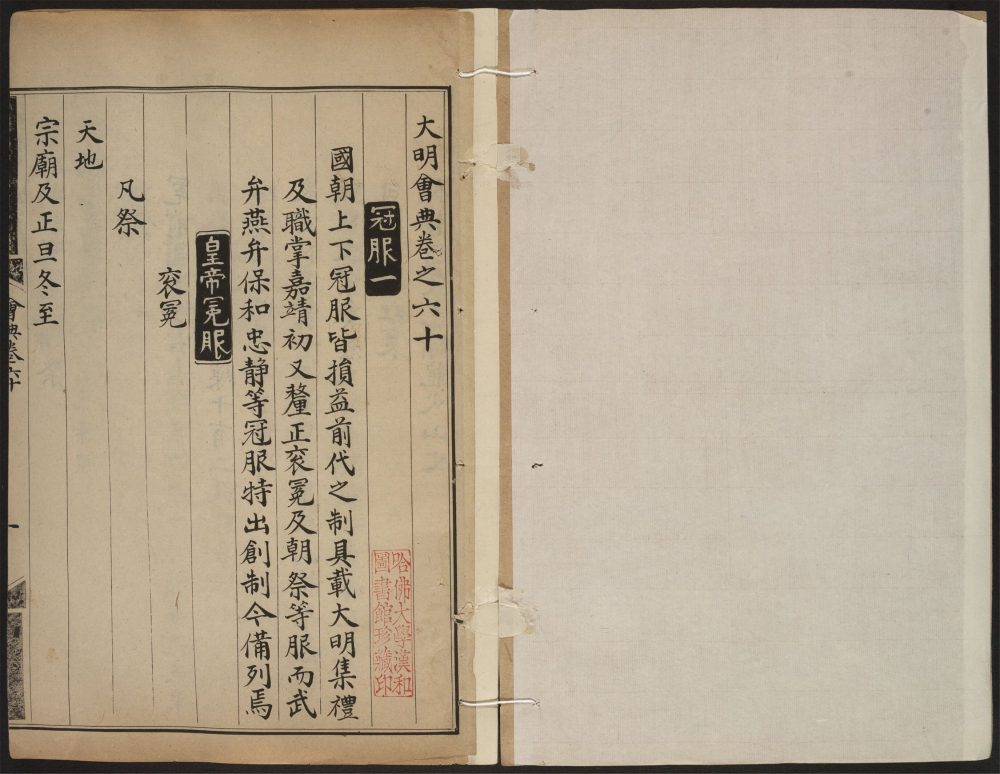 大明會典卷之六十
冠服一
國朝上下冠服皆損益前代之制具載大明集禮
及職掌嘉靖初又釐正衮冕及朝祭等服而武
弁燕弁保和忠靜等冠服特出創制今備列焉
皇帝冕服
衮冕
凡祭
天地
宗廟及正旦冬至
會典卷六十
一
哈佛大學漢和
圖書館珍藏印